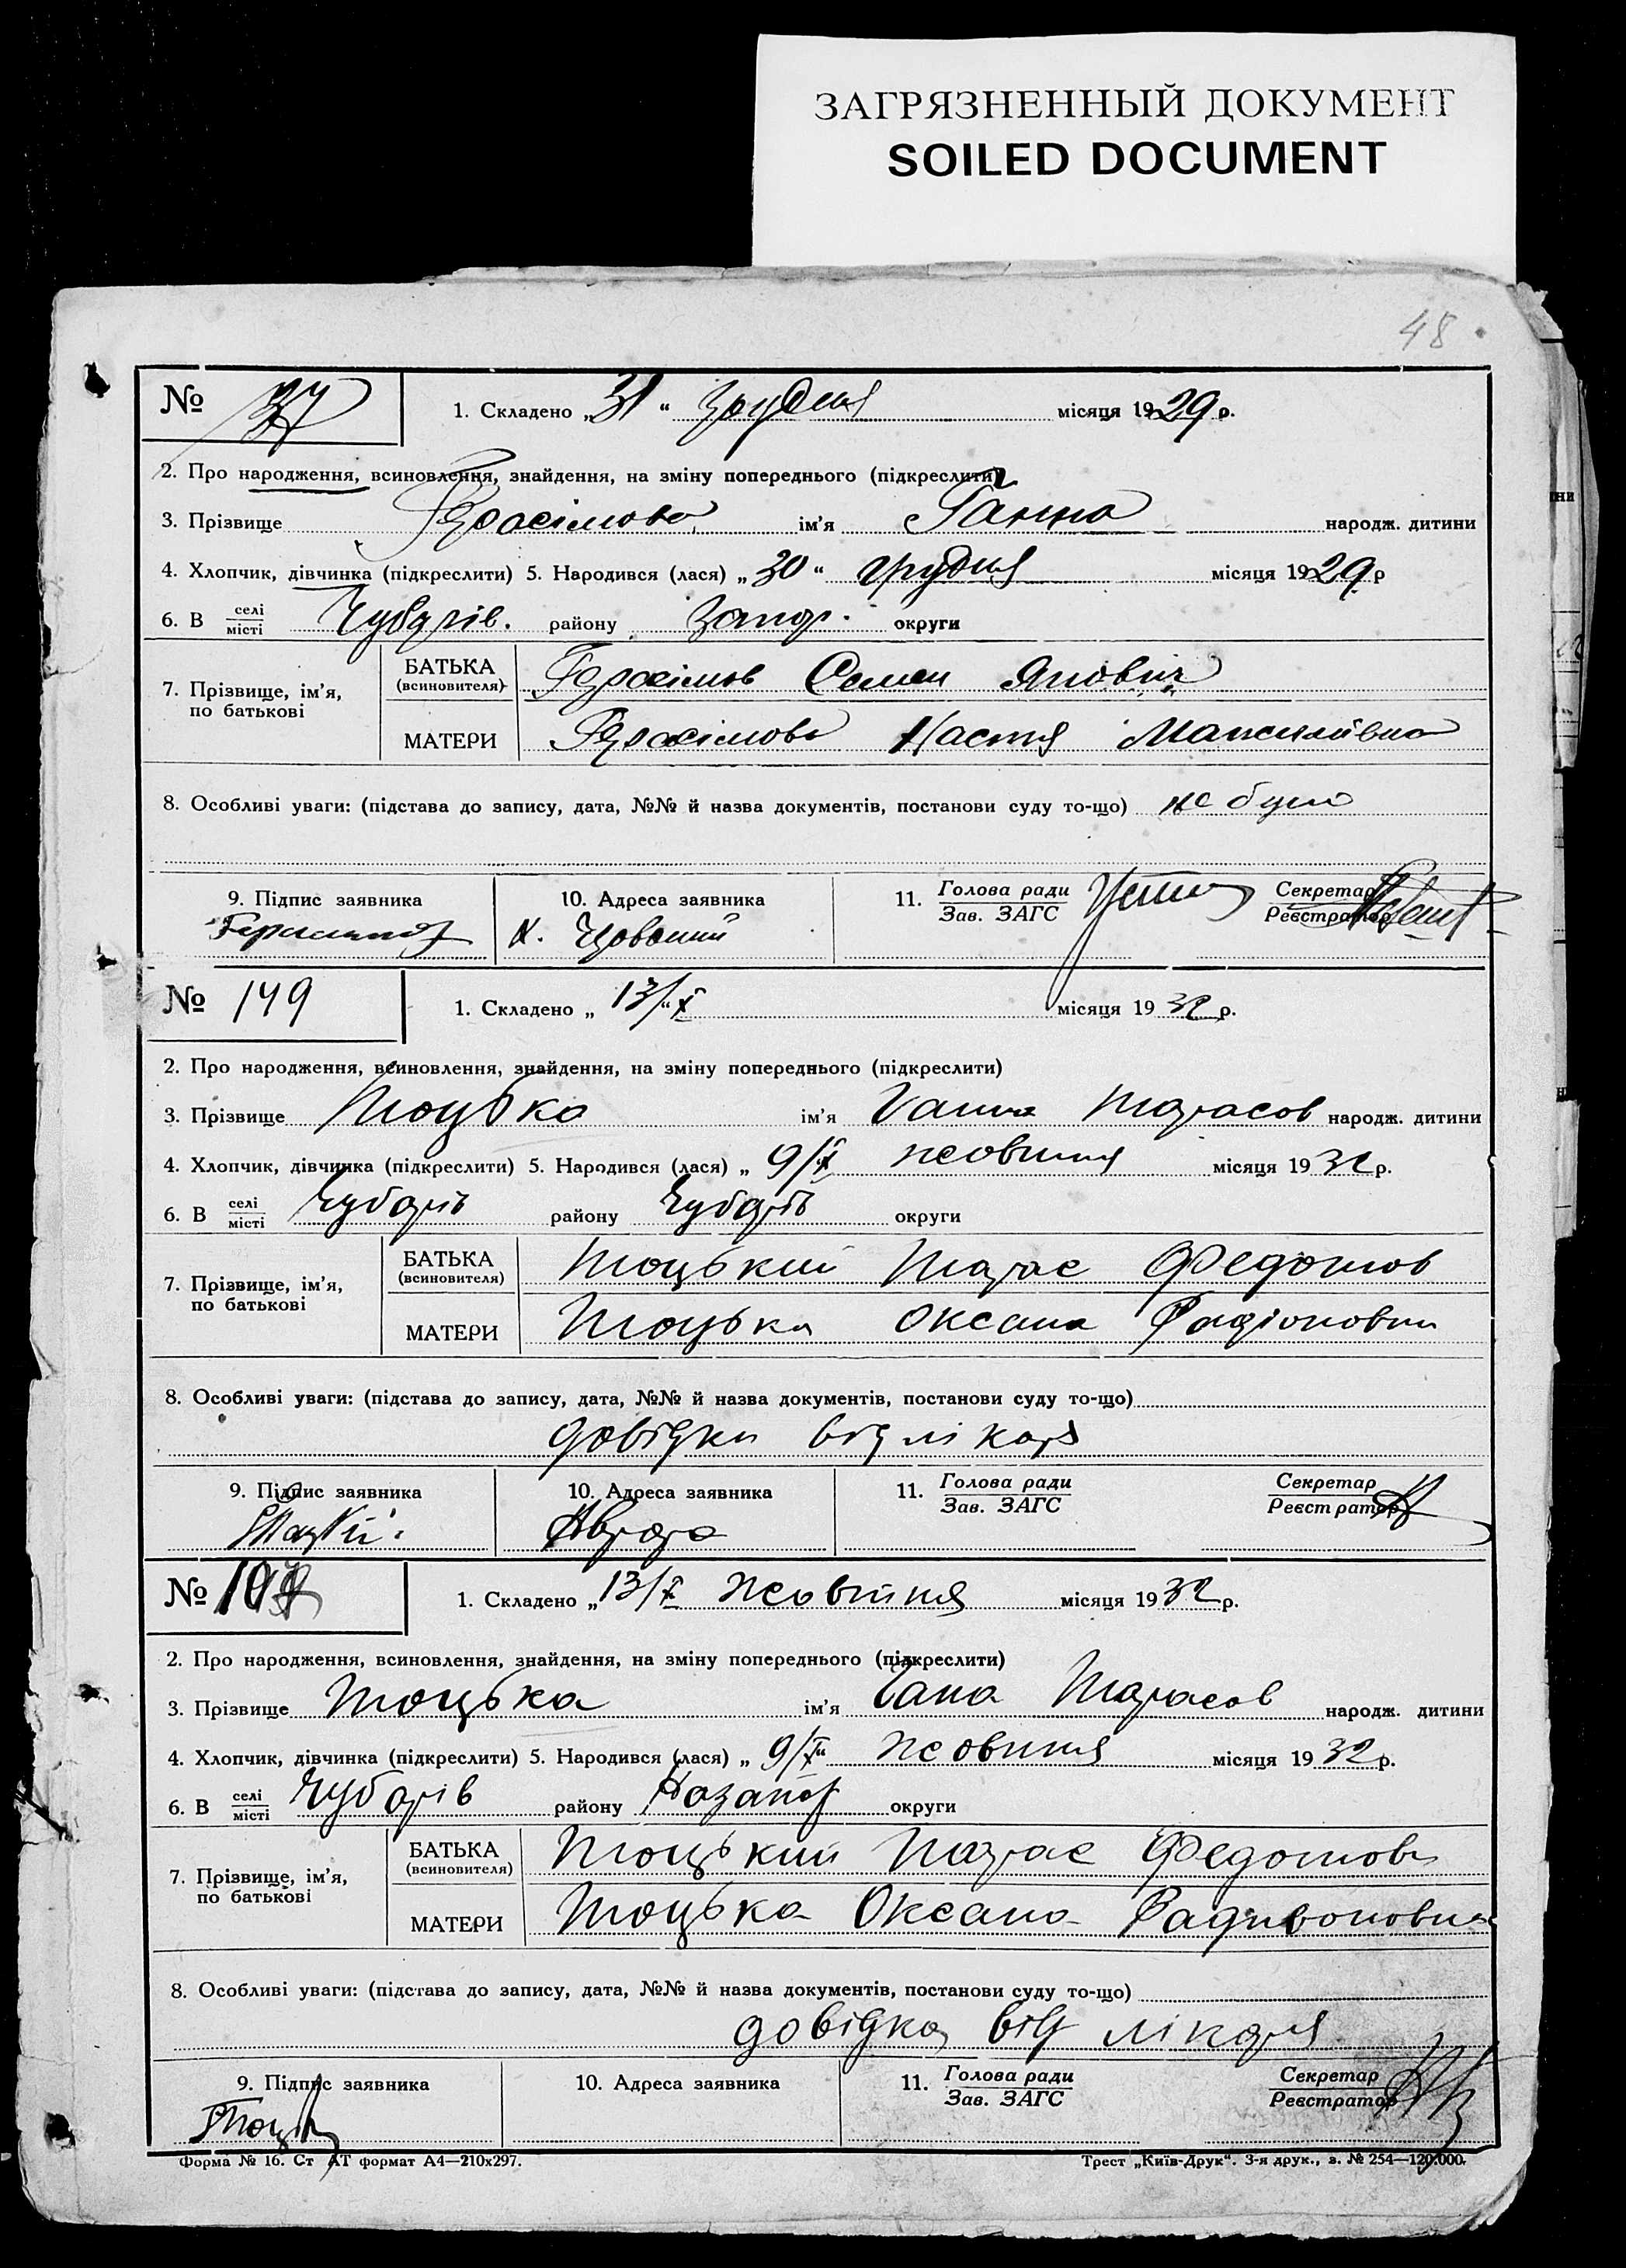 ЗАГРЯЗНЕННЫЙ ДОКУМЕНТ
SOILED DOCUMENT
48
№ 37 1. Складено „31“ грудня місяця 1929 р.
2. Про народження, всиновлення, знайдення, на зміну попереднього (підкреслити)
3. Прізвище Герасімова ім'я Ганна народж. дитини
4. Хлопчик, дівчинка (підкреслити) 5. Народився (лася) „30“ грудня місяця 1929 р
6. В селі/місті Чубарів. району Запор. округи
7. Прізвище, ім'я, по батькові
БАТЬКА (всиновителя) Герасімов Семен Янович
МАТЕРИ Герасімова Настя
8. Особливі уваги: (підстава до запису, дата, №№ й назва документів, постанови суду то-що) не було
9. Підпис заявника 10. Адреса заявника 11. Голова ради/Зав. ЗАГС Секретар/Реєстратор
№ 149 1. Складено „13/X“ місяця 1932 р.
2. Про народження, всиновлення, знайдення, на зміну попереднього (підкреслити)
3. Прізвище Тоцька ім'я Ганна Тарасов народж. дитини
4. Хлопчик, дівчинка (підкреслити) 5. Народився (лася) „9/X жовтня місяця 1932 р.
6. В селі/місті Чубарів району Чубарів округи
7. Прізвище, ім'я, по батькові
БАТЬКА (всиновителя) Тоцький Тарас Федотов
МАТЕРИ Тоцька Оксана Радіоновна
8. Особливі уваги: (підстава до запису, дата, №№ й назва документів, постанови суду то-що)
довідки від лікаря
9. Підпис заявника 10. Адреса заявника 11. Голова ради/Зав. ЗАГС Секретар/Реєстратор
Аврора
№ 1. Складено „13/X жовтня місяця 1932 р.
2. Про народження, всиновлення, знайдення, на зміну попереднього (підкреслити)
3. Прізвище Тоцька ім'я Гана Тарасов народж. дитини
4. Хлопчик, дівчинка (підкреслити) 5. Народився (лася) „9/X“ жовтня місяця 1932 р.
6. В селі/місті Чубарів району округи
7. Прізвище, ім'я, по батькові
БАТЬКА (всиновителя) Тоцький Тарас Федотов
МАТЕРИ Тоцька Оксана Радивоновна
8. Особливі уваги: (підстава до запису, дата, №№ й назва документів, постанови суду то-що)
довідка від лікаря
9. Підпис заявника 10. Адреса заявника 11. Голова ради/Зав. ЗАГС Секретар/Реєстратор
Форма № 16. Ст АТ формат А4—210x297. Трест „Київ-Друк“. 3-я друк., з. № 254—120.000.